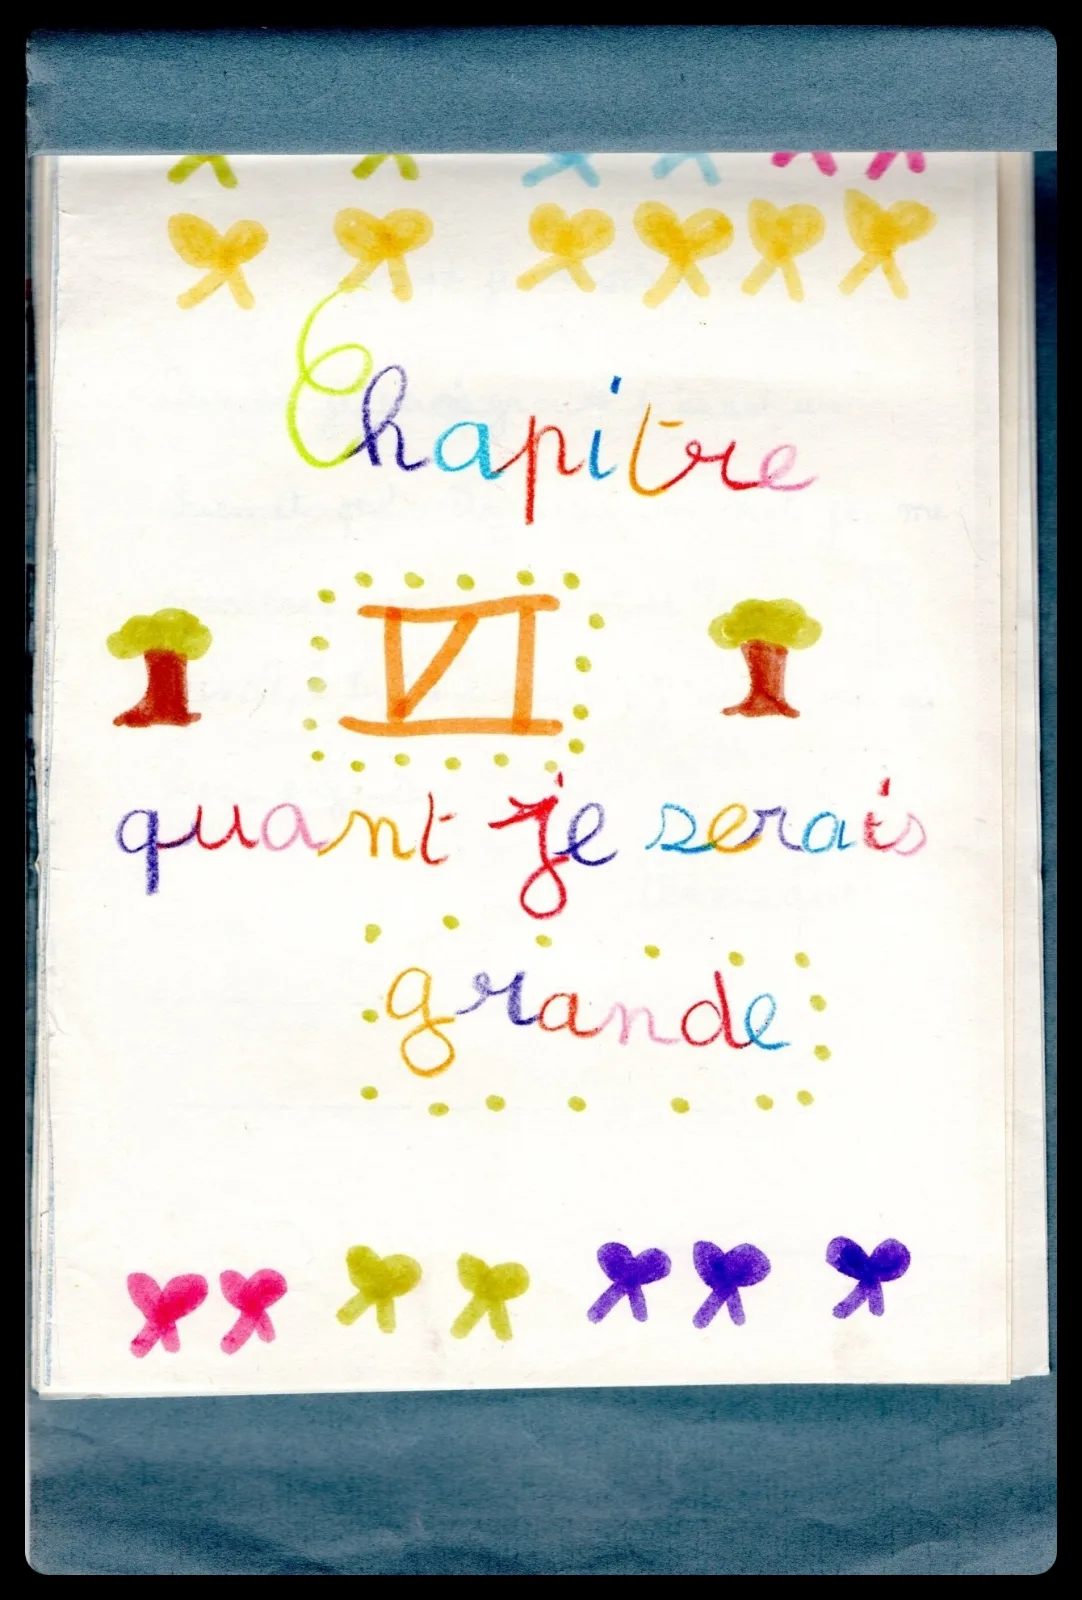 Chapitre
VI
quant je serais
grande